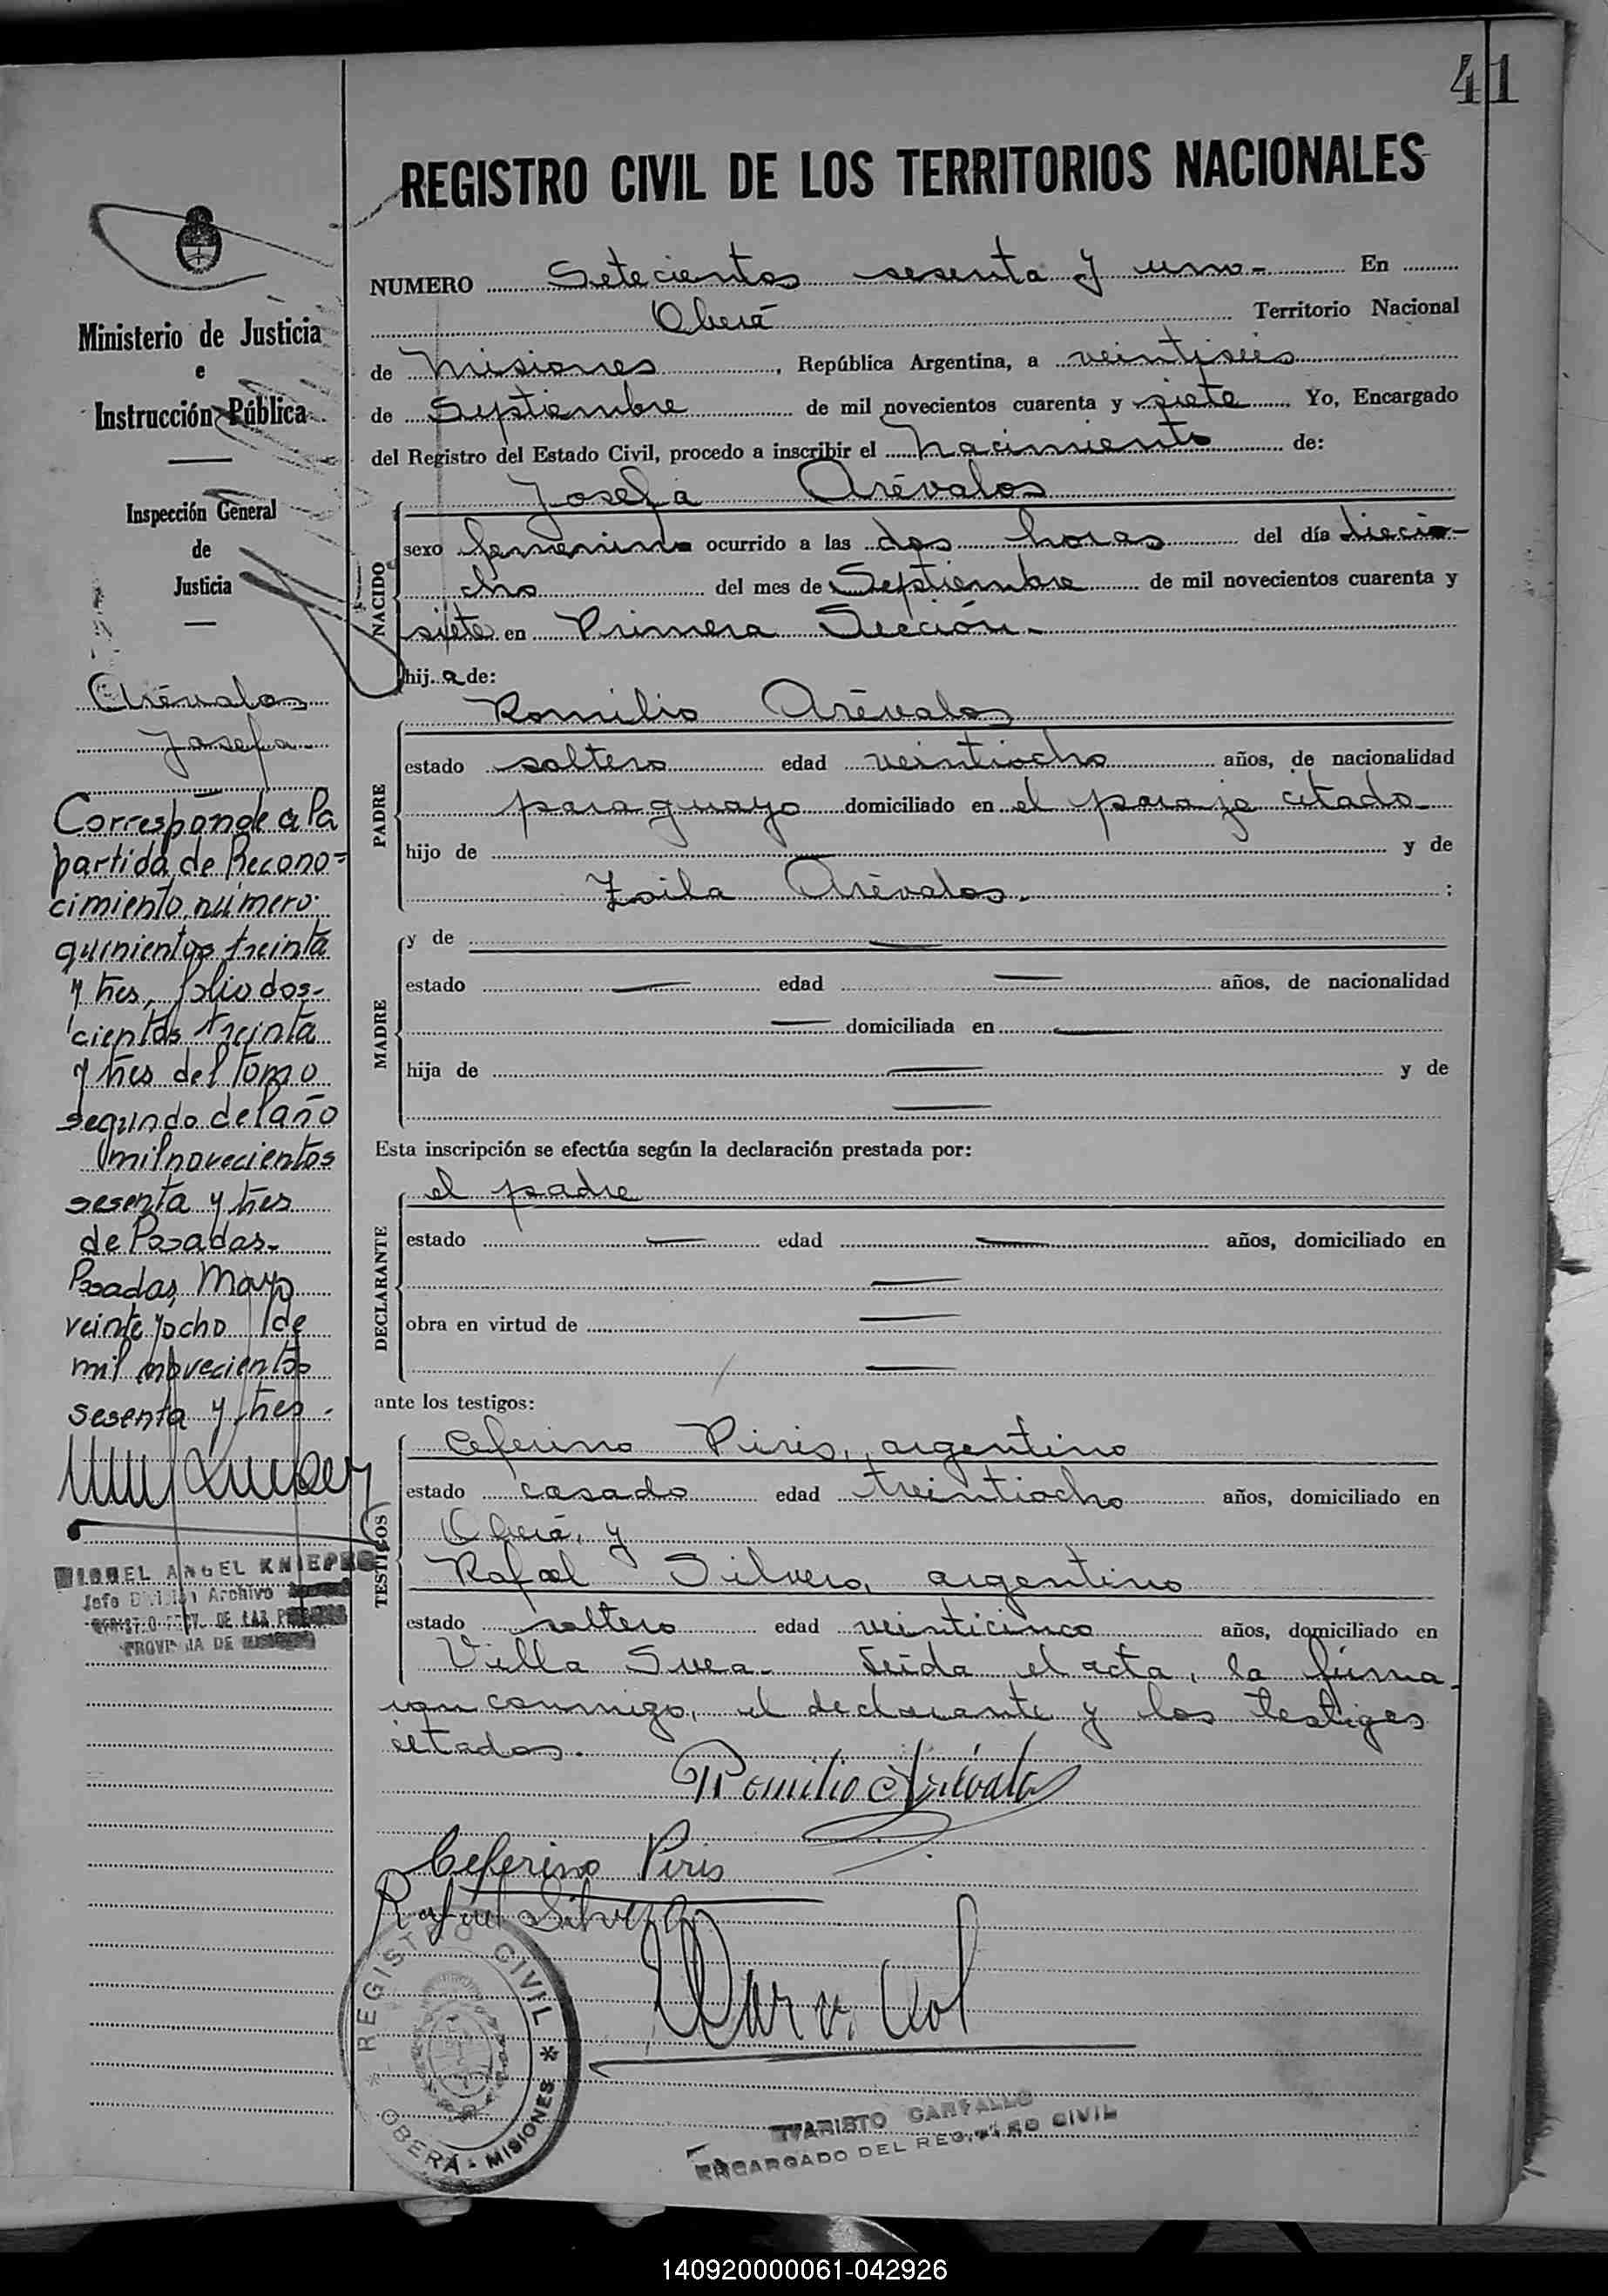 41
REGISTRO CIVIL DE LOS TERRITORIOS NACIONALES
NUMERO Setecientos sesenta y uno - En
Oberá Territorio Nacional
de Misiones, República Argentina, a veintiseis
de Septiembre de mil novecientos cuarenta y siete Yo, Encargado
del Registro del Estado Civil, procedo a inscribir el nacimiento de:
NACIDO
Josefa Arévalos
sexo femenino ocurrido a las dos horas del día diecio-
cho del mes de Septiembre de mil novecientos cuarenta y
siete en Primera Sección.-
hij a de:
PADRE
Romilio Arévalos
estado soltero edad veintiocho años, de nacionalidad
paraguayo domiciliado en el paraje citado
hijo de y de
Zoila Arévalos. ;
MADRE
y de —
estado — edad — años, de nacionalidad
— domiciliada en —
hija de — y de
—
Esta inscripción se efectúa según la declaración prestada por:
DECLARANTE
el padre
estado — edad — años, domiciliado en
—
obra en virtud de —
—
ante los testigos:
TESTIGOS
Ceferino Piris, argentino
estado casado edad treintiocho años, domiciliado en
Oberá, y
Rafael Silvero, argentino
estado soltero edad veinticinco años, domiciliado en
Villa Svea. Leída el acta, la firma-
ron conmigo, el declarante y los testigos
citados.
Romilio Arévalo
Ceferino Piris
Rafael Silvero
REGISTRO CIVIL * OBERÁ - MISIONES *
EVARISTO CARVALLO
ENCARGADO DEL REGISTRO CIVIL
Ministerio de Justicia
e
Instrucción Pública
Inspección General
de
Justicia
Arévalos
Josefa
Corresponde a la
partida de Recono=
cimiento, número
quinientos treinta
y tres, folio dos-
cientos treinta
y tres del tomo
segundo del año
mil novecientos
sesenta y tres
de Posadas.-
Posadas, Mayo
veinte y ocho de
mil novecientos
sesenta y tres.-
MIGUEL ANGEL
Jefe División Archivo
PROVINCIA DE
140920000061-042926